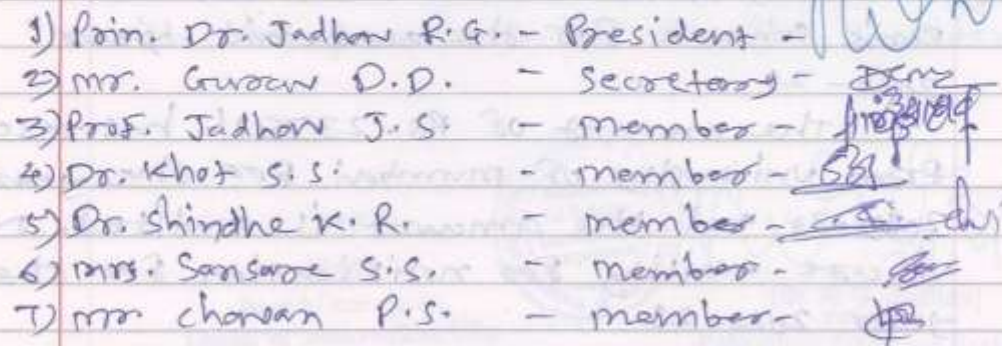 1) Prin. Dr. Jadhav R.G. - President -
2) mr. Gurav D.D. - Secretary -
3) Prof. Jadhav J.S. - member -
4) Dr. Khot S.S. - member -
5) Dr. Shindhe K.R. - member -
6) mrs. Sansare S.S. - member -
7) mr. chavan P.S. - member -